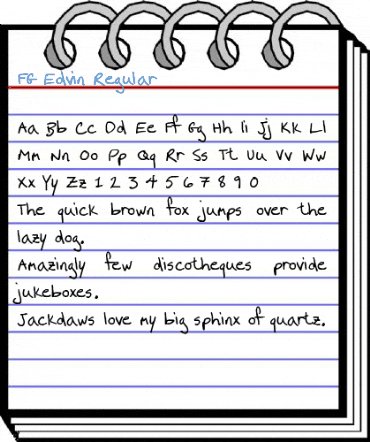 FG Edvin Regular
Aa Bb Cc Dd Ee Ff Gg Hh Ii Jj Kk Ll
Mm Nn Oo Pp Qq Rr Ss Tt Uu Vv Ww
Xx Yy Zz 1 2 3 4 5 6 7 8 9 0
The quick brown fox jumps over the
lazy dog.
Amazingly few discotheques provide
jukeboxes.
Jackdaws love my big sphinx of quartz.